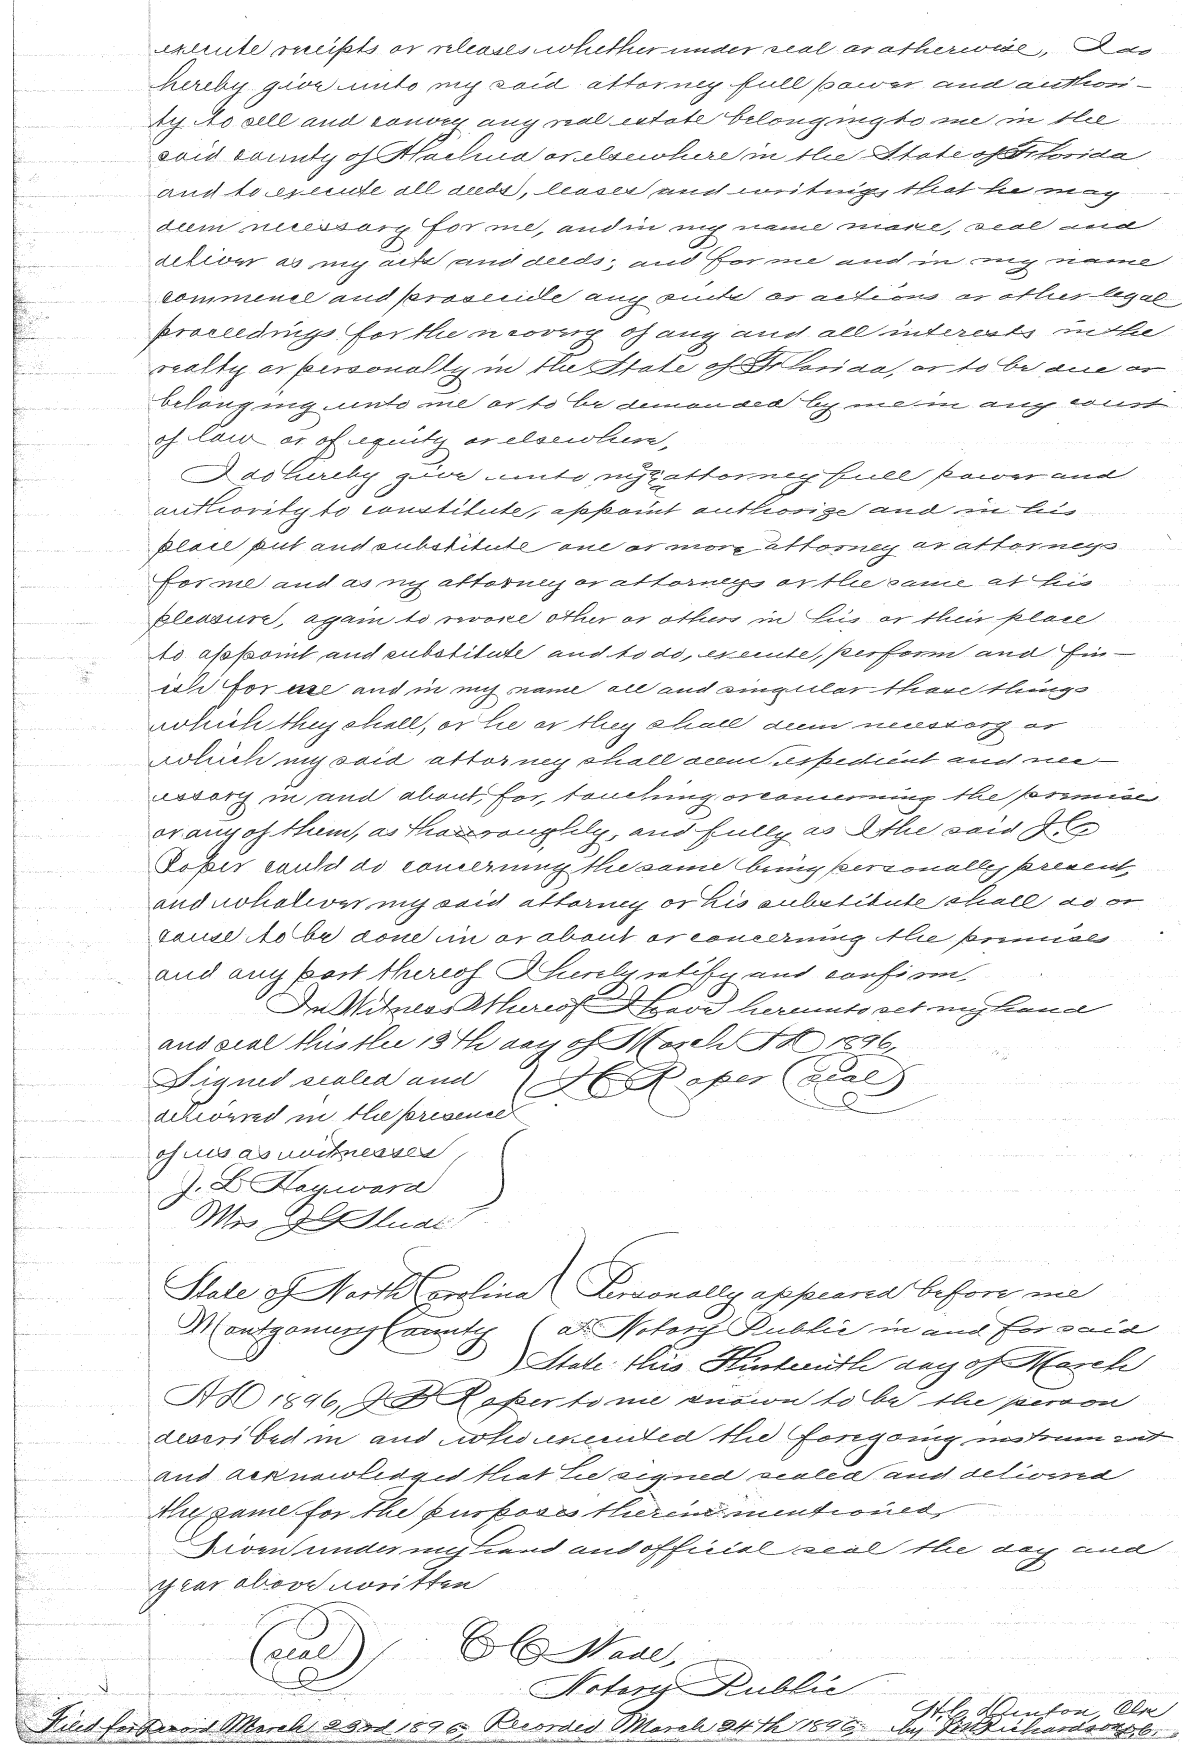 execute receipts or releases whether under seal or otherwise, I do
hereby give unto my said attorney full power and authori-
ty to sell and convey any real estate belonging to me in the
said county of Alachua or elsewhere in the State of Florida
and to execute all deeds, leases and writings that he may
deem necessary for me, and in my name make, seal and
deliver as my acts and deeds; and for me and in my name
commence and prosecute any suits or actions or other legal
proceedings for the recovery of any and all interests in the
realty or personally in the State of Florida, or to be due or
belonging unto me or to be demanded by me in any court
of law or of equity or elsewhere,
I do hereby give unto my attorney full power and
authority to constitute, appoint authorize and in his
place put and substitute one or more attorney or attorneys
for me and as my attorney or attorneys or the same at his
pleasure, again to revoke other or others in his or their place
to appoint and substitute and to do, execute, perform and fin-
ish for me and in my name all and singular those things
which they shall, or he or they shall deem necessary or
which my said attorney shall deem expedient and nec-
essary in and about, for, touching or concerning the premises
or any of them, as thouroughly, and fully as I the said J C
Roper could do concerning the same being personally present,
and whatever my said attorney or his substitute shall do or
cause to be done in or about or concerning the premises
and any part thereof I hereby ratify and confirm.
In Witness Whereof I have hereunto set my hand
and seal this the 13th day of March AD 1896,
Signed sealed and ( Roper (seal)
delivered in the presence
of us as witnesses
J. L Hayward
Mrs
State of North Carolina ) Personally appeared before me
Montgomery County ( a Notary Public in and for said
) State this Thirteenth day of March
AD 1896, Roper to me known to be the person
described in and who executed the foregoing instrument
and acknowledged that he signed sealed and delivered
the same for the purposes therein mentioned,
Given under my hand and official seal the day and
year above written
(seal) C C Wade,
Notary Public
Filed for Record March 23rd 1896, Recorded March 24th 1896. Denton, Clk
by Richardson D.C.